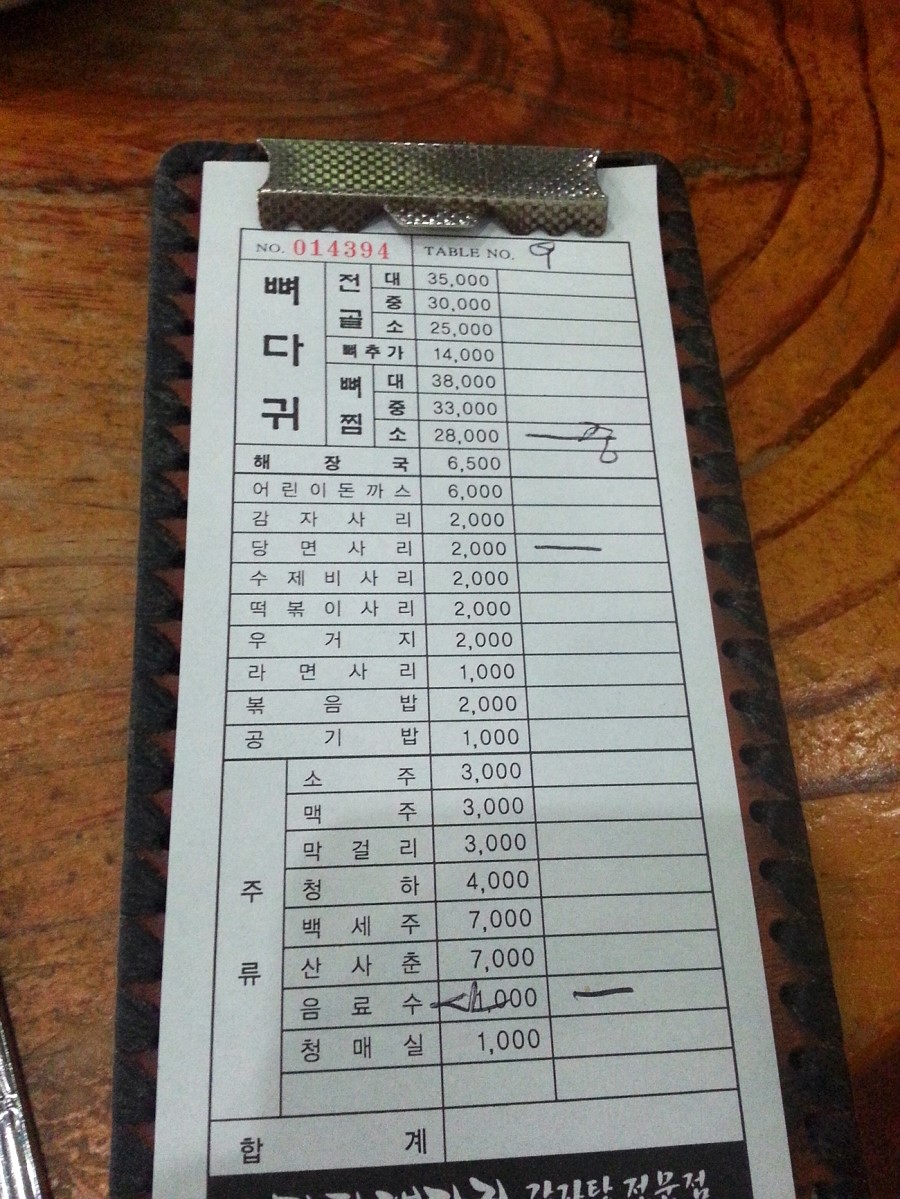 NO. 014394 TABLE NO. 9
뼈다귀
전골 대 35,000
중 30,000
소 25,000
뼈추가 14,000
뼈찜 대 38,000
중 33,000
소 28,000
해장국 6,500
어린이돈까스 6,000
감자사리 2,000
당면사리 2,000
수제비사리 2,000
떡볶이사리 2,000
우거지 2,000
라면사리 1,000
볶음밥 2,000
공기밥 1,000
주류
소주 3,000
맥주 3,000
막걸리 3,000
청하 4,000
백세주 7,000
산사춘 7,000
음료수 1,000
청매실 1,000
합계
감자탕 전문점